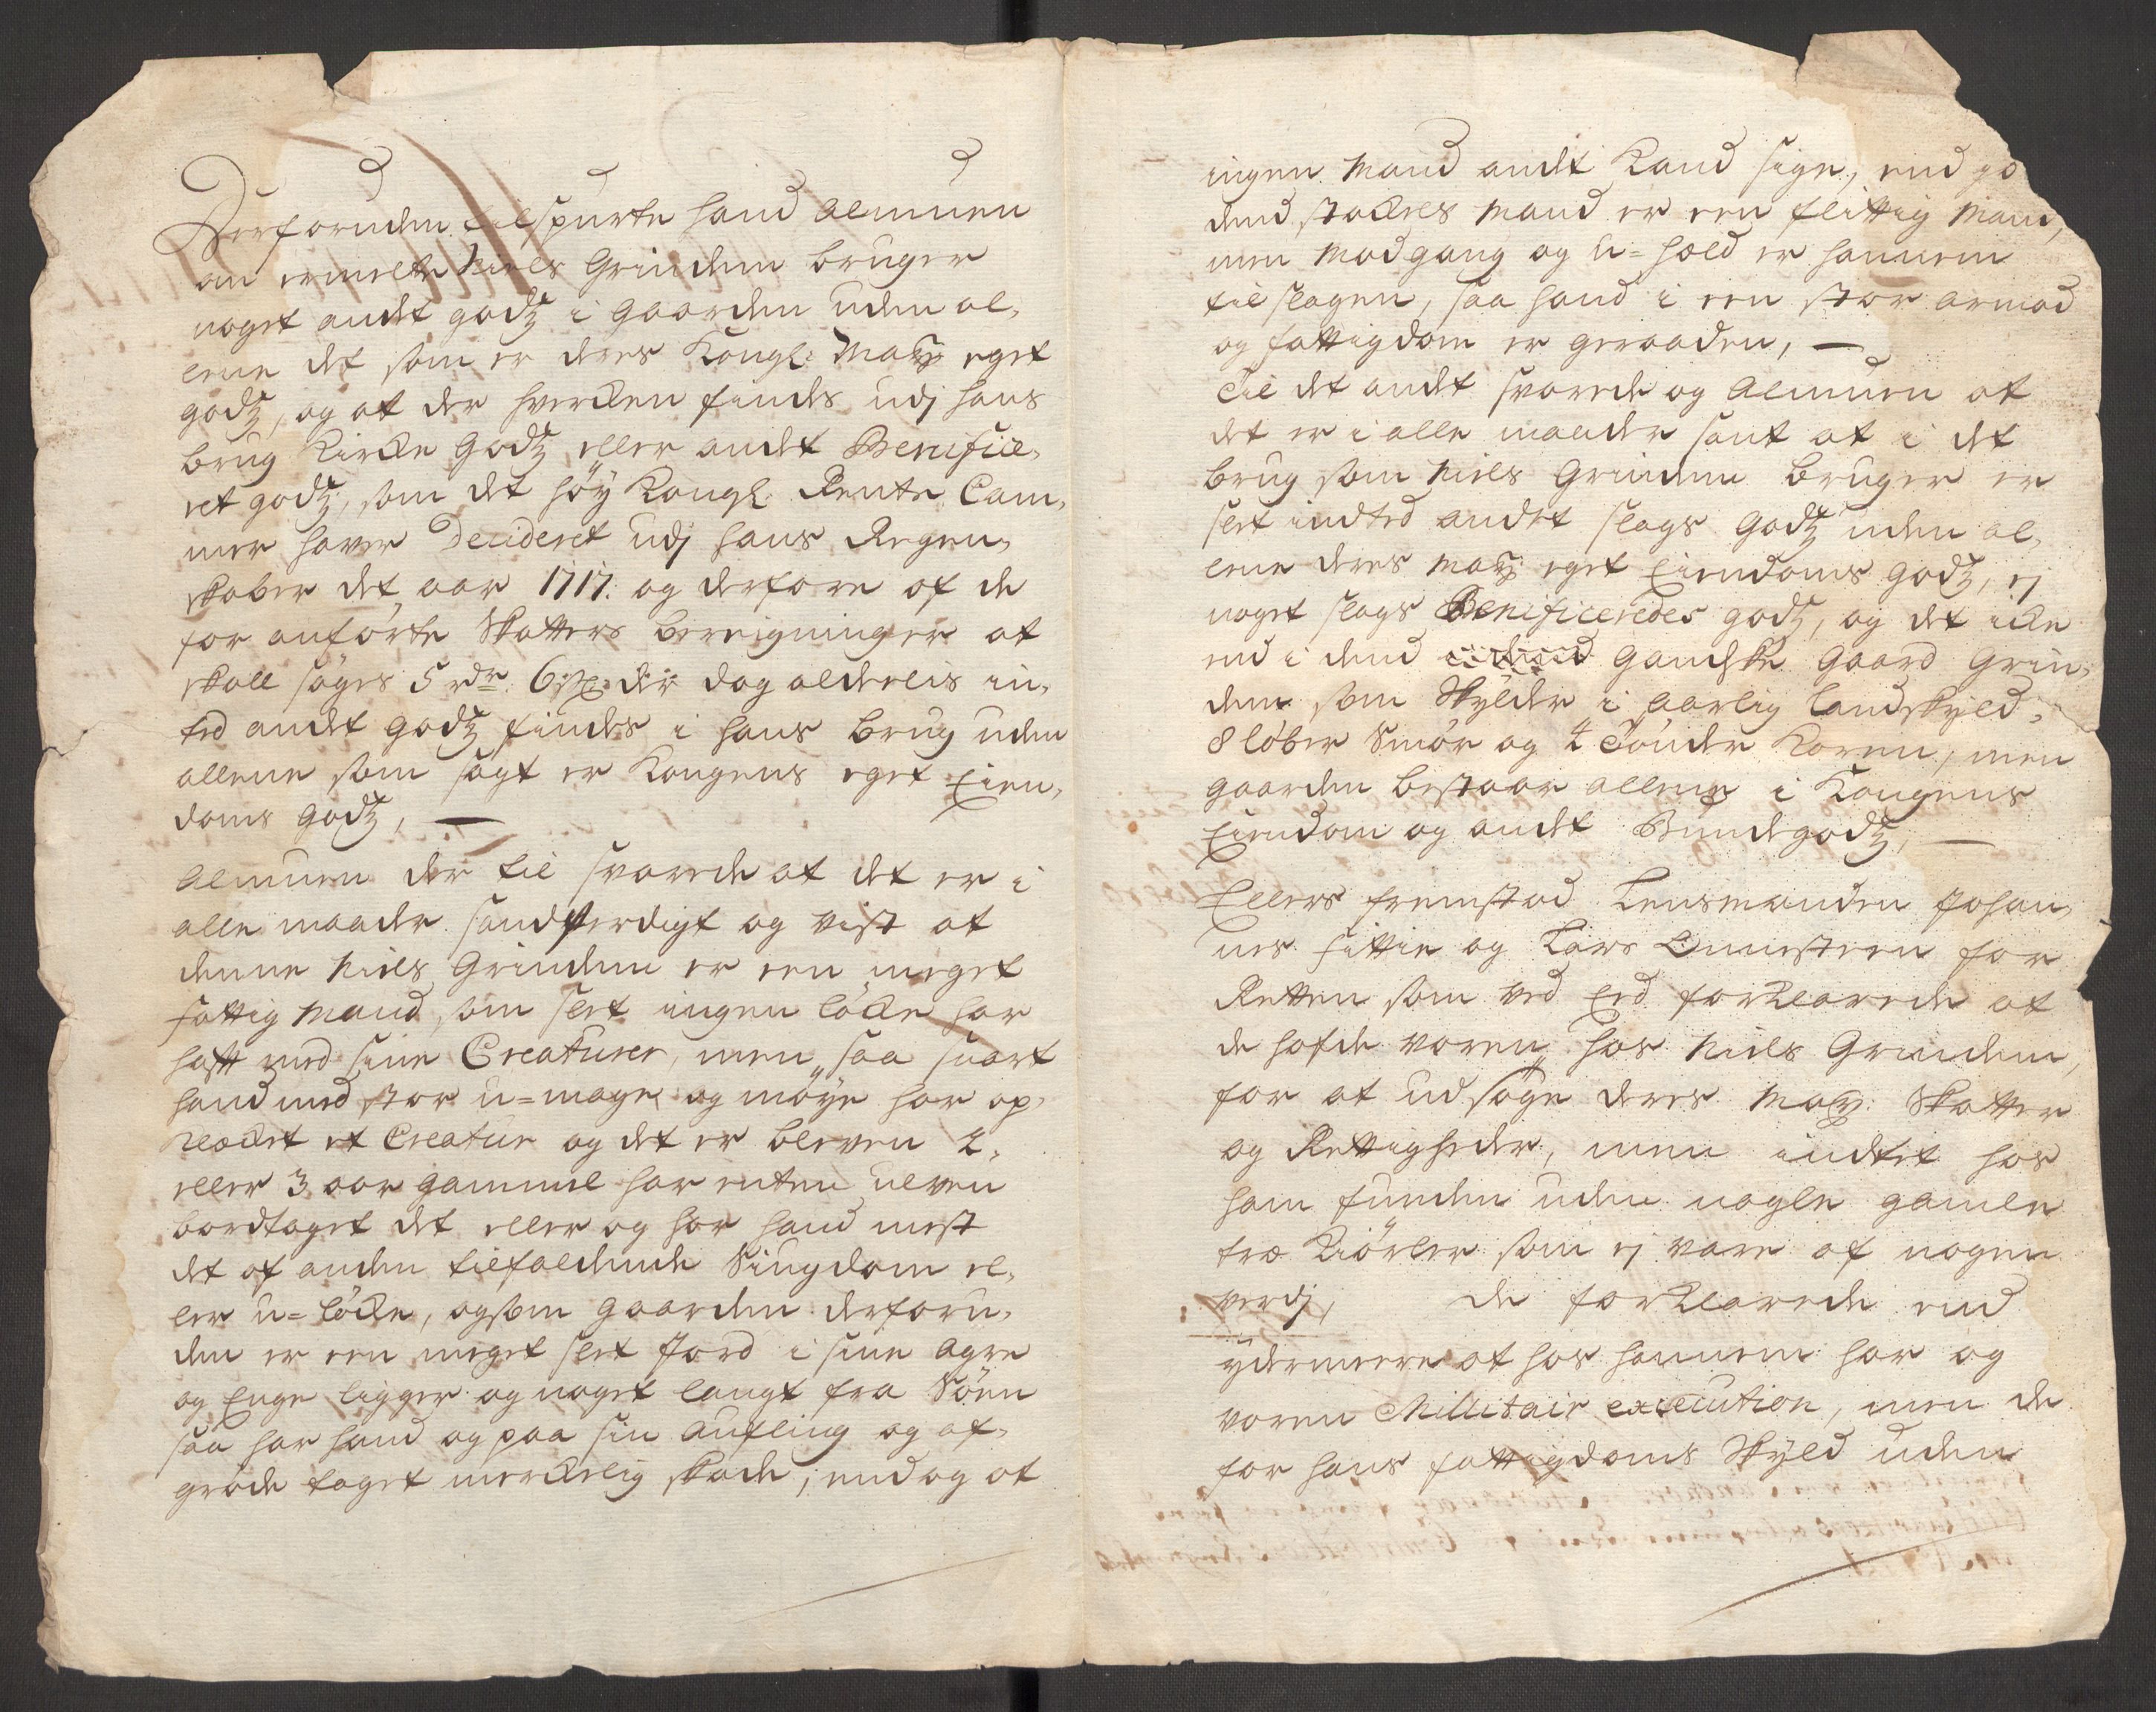 Derforuden tilspurte hand Almuen
om ermelte Niels Grindem bruger
noget andet godz i gaarden uden al,
lene det som er deres Kongl: May: eget
godz, og at der hverken findes udj hans
brug Kirke Godz eller andet Benifice,
ret godz, som det høy Kongl. Rente Cam,
mer haver Decideret udj hans Regen,
skaber det aar 1717. og derfore af de
for anførte Skatters bereigninger at
skall søges 5 rdr: 6 s: der dog alderlis in,
ted andet godz findes i hans brug uden
allene som sagt er Kongens eget Eien,
doms godz, —
Almuen der til svarede at det er i
alle maader sandferdigt og vist at
denne Niels Grindem er een meget
fattig Mand, som slet ingen løcke har
haft med sine Creaturer, men saa snart
hand med stor u=mage og møye har op,
klecket et Creatur og det er bleven 2,
eller 3 aar gammel har enten ulven
bordtaget det eller og har hand mist
det af anden tilfaldende Siugdom el,
ler u=løcke, og som gaarden deforu,
den er een meget slet Jord i sine Agre
og Enge ligger og noget langt fra Søen
saa har hand og paa sin Aufling og af,
grøde taget merckelig skade, end og at
ingen Mand andet Kand sige, end
dend stackels Mand er een flittig Mand,
men Modgang og u=held er hannem
tilslagen, saa hand i een stor armod
og fattigdom er geraaden, —
Til det andet svarede og Almuen at
det er i alle maader sant at i det
brug som Niels Grindem bruger er
slet indted andet slags Godz uden al,
lene deres May: eget Eiendoms godz, ej
noget slags Benificeredes godz, og det icke
end i dend gandske Gaard Grin,
dem som Skylder i aarlig Landskyld,
8 løber Smør og 4 Tønder Koren, men
gaarden bestaar allene i Kongens
Eiendom og andet Bundegodz, —
Ellers fremstod Lensmanden Johan,
nes Hittie og Lars for
Retten som ved Eed forklarede at
de hafde voren hos Niels Grindem,
for at udsøge deres May: Skatter
og Rettigheder, men indtet hos
ham funden uden nogle gamle
træ Kiørler som ej vare af nogen
verdj, De forklarede end
ydermeere at hos hannem har og
voren Millitair execution, men de
for hans fattigdoms Skyld uden